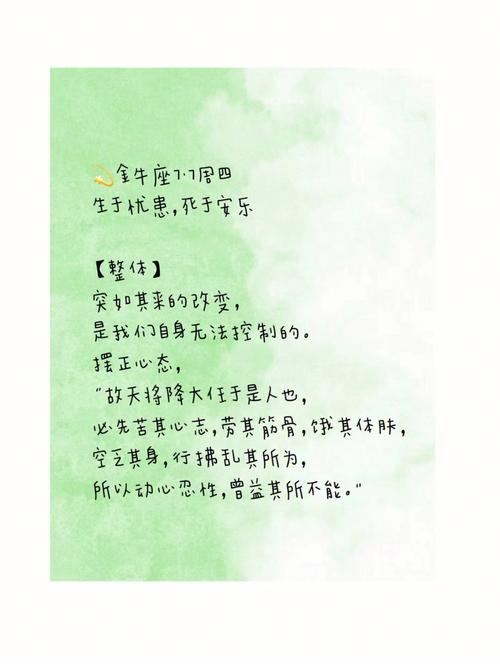 💫金牛座7.7周四
生于忧患,死于安乐
【整体】
突如其来的改变,
是我们自身无法控制的。
摆正心态,
"故天将降大任于是人也,
必先苦其心志,劳其筋骨,饿其体肤,
空乏其身,行拂乱其所为,
所以动心忍性,曾益其所不能。"